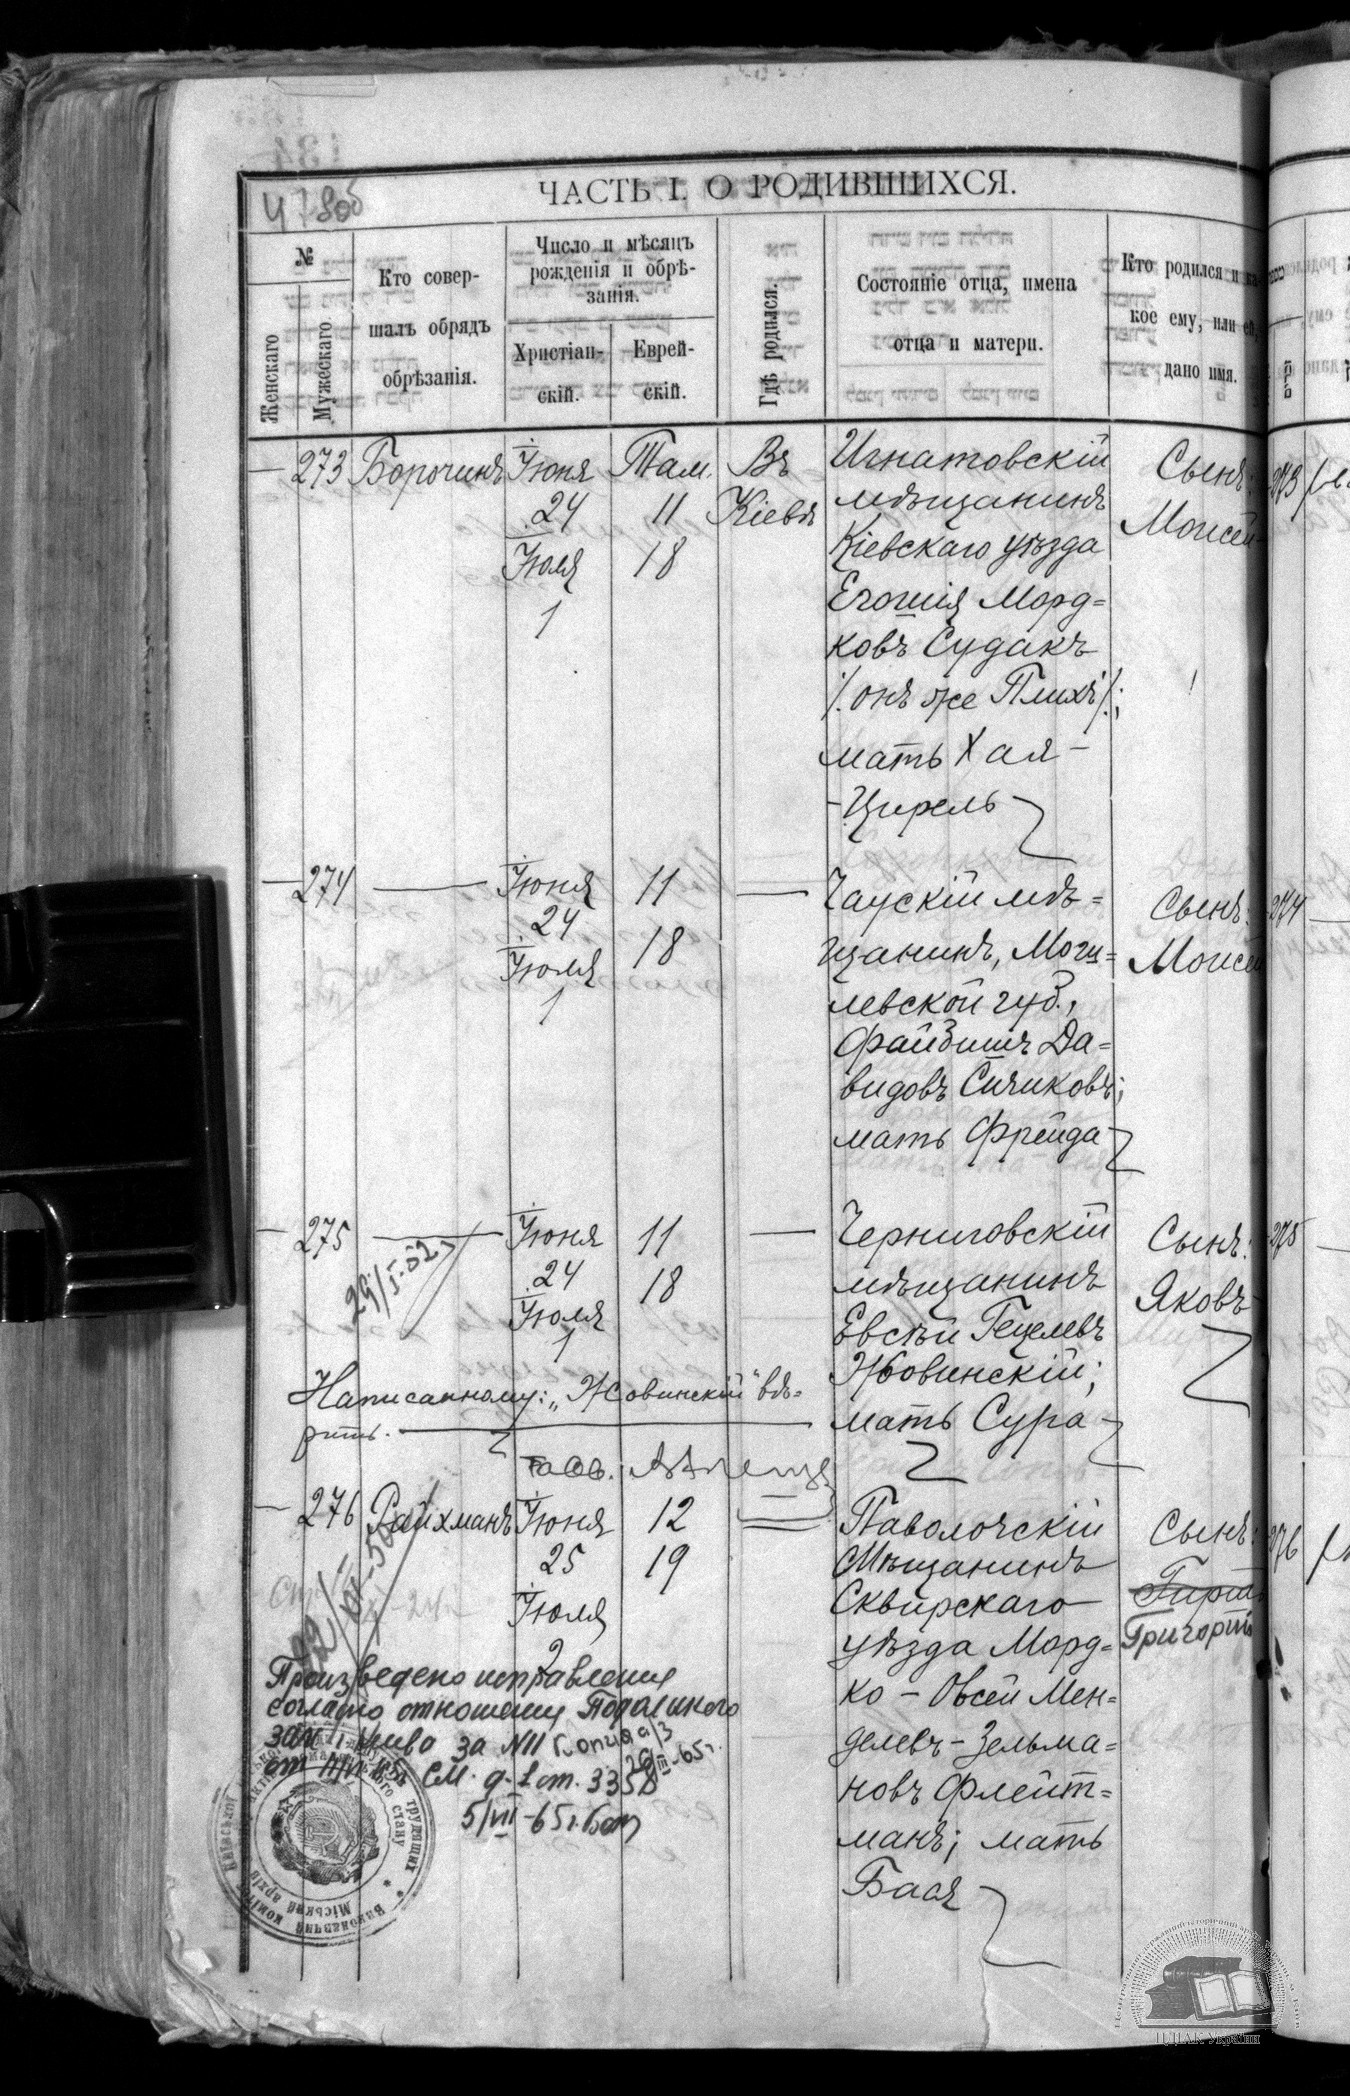 478об
ЧАСТЬ I. О РОДИВШИХСЯ.
№
Женскаго
Мужескаго
Кто совер-
шалъ обрядъ
обрѣзанія.
Число и мѣсяцъ
рожденія и обрѣ-
занія.
Христіан-
скій.
Еврей-
скій.
Гдѣ родился.
Состояніе отца, имена
отца и матери.
Кто родился и ка-
кое ему, или ей,
дано имя.
273 Борочинъ Іюня 24 Іюля 1
Там. 11 18
Въ Кіевѣ
Игнатовскій
мѣщанинъ
Кіевскаго уѣзда
Егошія Морд=
ковъ Судакъ
/. онъ же Плихъ ./;
мать Хая-
-Цирель
Сынъ:
Моисей
274 — Іюня 24 Іюля 1
11 18
—
Чаускій мѣ=
щанинъ, Моги=
левской губ.,
Файвишъ Да=
видовъ Сичиковъ;
мать Фрейда
Сынъ:
Моисей
275 — Іюня 24 Іюля 1
11 18
—
29/I-52
Черниговскій
мѣщанинъ
Евсѣй Гецелевъ
Жовинскій;
мать Сура
Сынъ:
Яковъ
Написанному: „Жовинскій" вѣ=
рить.
276 Райхманъ Іюня 25 Іюля 2
12 19
Паволочскій
Мѣщанинъ
Сквирскаго
уѣзда Морд=
ко-Овсей Мен=
делевъ-Зельма=
новъ Флейт=
манъ; мать
Бася
Сынъ:
Григорій
Произведено исправление
согласно отношения Подольского
за №11
см. д. 1 ст. 335
5/VII-65г.
Міський архів
ЦДІАК України